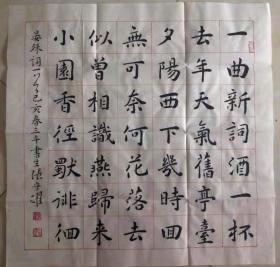 一曲新詞酒一杯
去年天氣舊亭臺
夕陽西下幾時回
無可奈何花落去
似曾相識燕歸来
小園香徑獨徘徊
晏殊詞一首己亥春三年書生張